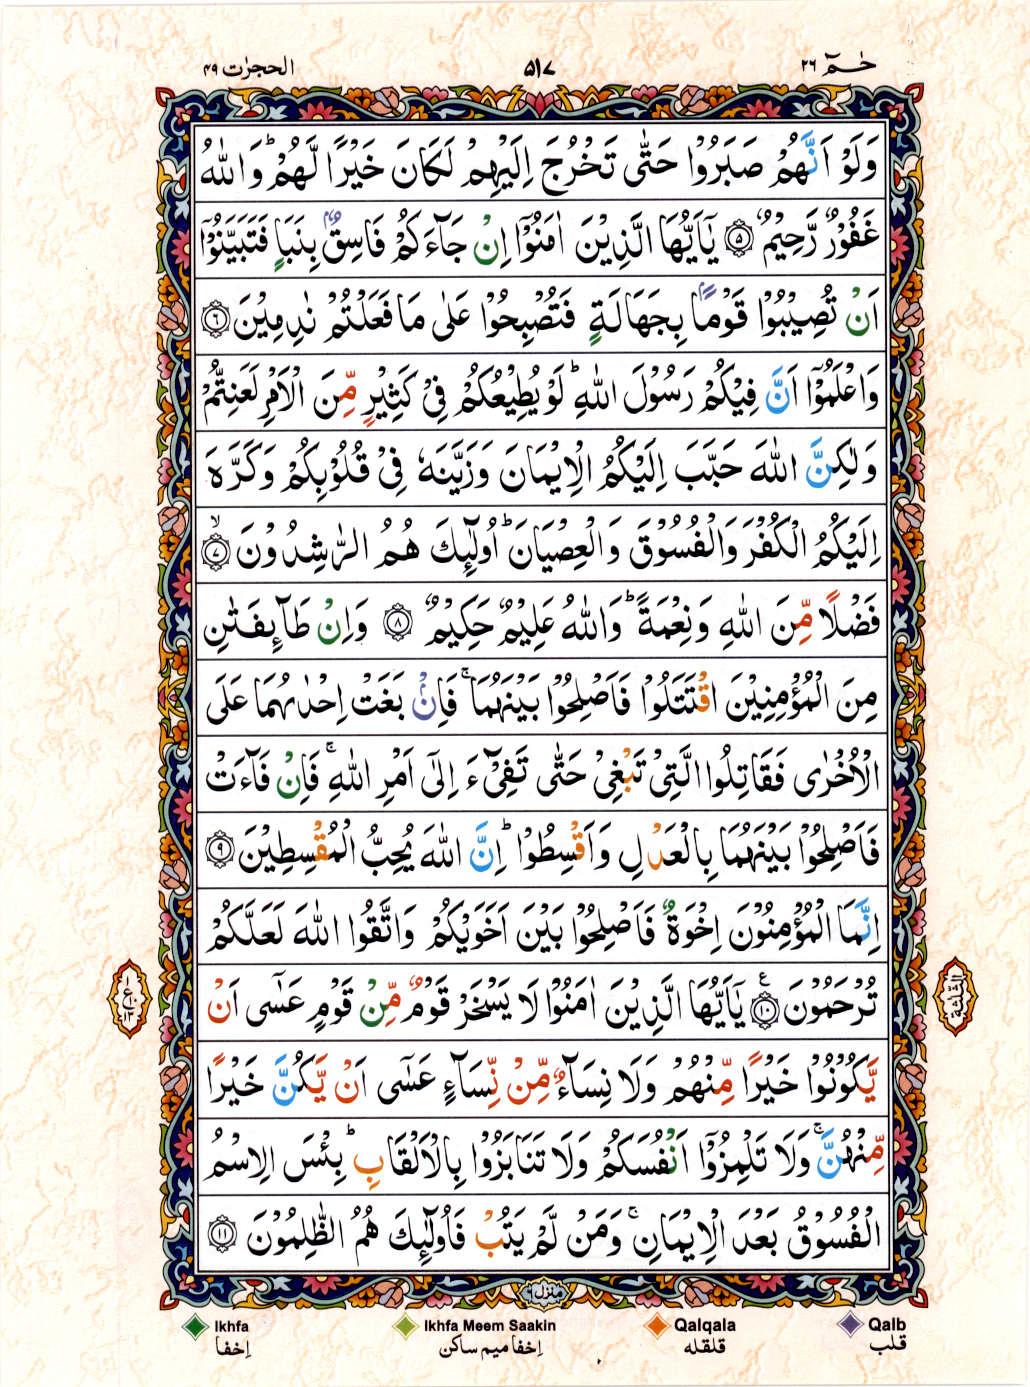 حٰمٓ ٢٦
٥١٧
الحجرٰت ٤٩
وَلَوْ اَنَّهُمْ صَبَرُوْا حَتّٰى تَخْرُجَ اِلَيْهِمْ لَكَانَ خَيْرًا لَّهُمْ ؕ وَاللّٰهُ
غَفُوْرٌ رَّحِيْمٌ ۝٥ يٰۤاَيُّهَا الَّذِيْنَ اٰمَنُوْۤا اِنْ جَآءَكُمْ فَاسِقٌۢ بِنَبَاٍ فَتَبَيَّنُوْۤا
اَنْ تُصِيْبُوْا قَوْمًۢا بِجَهَالَةٍ فَتُصْبِحُوْا عَلٰى مَا فَعَلْتُمْ نٰدِمِيْنَ ۝٦
وَاعْلَمُوْۤا اَنَّ فِيْكُمْ رَسُوْلَ اللّٰهِ ؕ لَوْ يُطِيْعُكُمْ فِيْ كَثِيْرٍ مِّنَ الْاَمْرِ لَعَنِتُّمْ
وَلٰكِنَّ اللّٰهَ حَبَّبَ اِلَيْكُمُ الْاِيْمَانَ وَزَيَّنَهٗ فِيْ قُلُوْبِكُمْ وَكَرَّهَ
اِلَيْكُمُ الْكُفْرَ وَالْفُسُوْقَ وَالْعِصْيَانَ ؕ اُولٰٓئِكَ هُمُ الرّٰشِدُوْنَ ۝٧ۙ
فَضْلًا مِّنَ اللّٰهِ وَنِعْمَةً ؕ وَاللّٰهُ عَلِيْمٌ حَكِيْمٌ ۝٨ وَاِنْ طَآئِفَتٰنِ
مِنَ الْمُؤْمِنِيْنَ اقْتَتَلُوْا فَاَصْلِحُوْا بَيْنَهُمَا ۚ فَاِنْۢ بَغَتْ اِحْدٰىهُمَا عَلَى
الْاُخْرٰى فَقَاتِلُوا الَّتِيْ تَبْغِيْ حَتّٰى تَفِيْٓءَ اِلٰٓى اَمْرِ اللّٰهِ ۚ فَاِنْ فَآءَتْ
فَاَصْلِحُوْا بَيْنَهُمَا بِالْعَدْلِ وَاَقْسِطُوْا ؕ اِنَّ اللّٰهَ يُحِبُّ الْمُقْسِطِيْنَ ۝٩
اِنَّمَا الْمُؤْمِنُوْنَ اِخْوَةٌ فَاَصْلِحُوْا بَيْنَ اَخَوَيْكُمْ وَاتَّقُوا اللّٰهَ لَعَلَّكُمْ
تُرْحَمُوْنَ ۝١٠ۧ يٰۤاَيُّهَا الَّذِيْنَ اٰمَنُوْا لَا يَسْخَرْ قَوْمٌ مِّنْ قَوْمٍ عَسٰۤى اَنْ
يَّكُوْنُوْا خَيْرًا مِّنْهُمْ وَلَا نِسَآءٌ مِّنْ نِّسَآءٍ عَسٰۤى اَنْ يَّكُنَّ خَيْرًا
مِّنْهُنَّ ۚ وَلَا تَلْمِزُوْۤا اَنْفُسَكُمْ وَلَا تَنَابَزُوْا بِالْاَلْقَابِ ؕ بِئْسَ الِاسْمُ
الْفُسُوْقُ بَعْدَ الْاِيْمَانِ ۚ وَمَنْ لَّمْ يَتُبْ فَاُولٰٓئِكَ هُمُ الظّٰلِمُوْنَ ۝١١
الثلثة
منزل ٦
Ikhfa
اِخفا
Ikhfa Meem Saakin
اِخفا میم ساکن
Qalqala
قلقله
Qalb
قلب